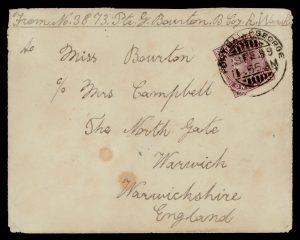 From No. 3873. Pte G. Bourton. B Coy R. Warwick
To Miss Bourton
c/o Mrs Campbell
The North Gate
Warwick
Warwickshire
England
GEORGE